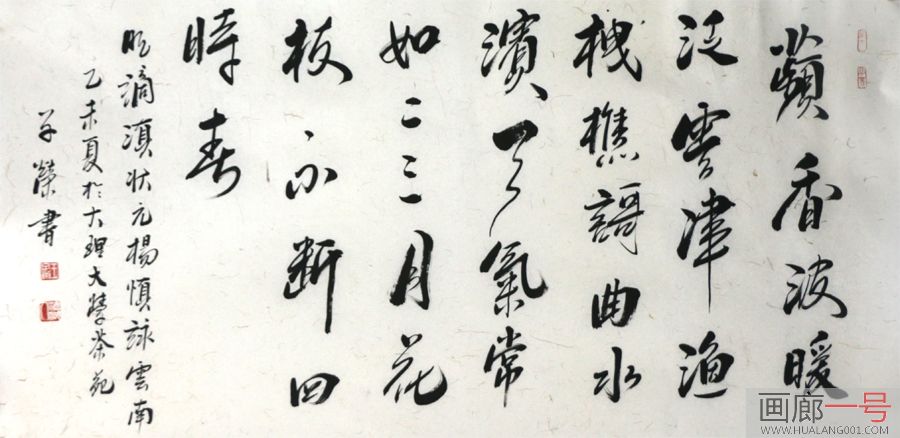 蘋香波暖
泛雲津漁
栧樵謌曲水
濱天氣常
如二三月花
枝不斷四
時春
明謫滇狀元楊慎詠雲南
乙未夏於大理大榮茶苑
榮書
画廊一号
WWW.HUALANG001.COM